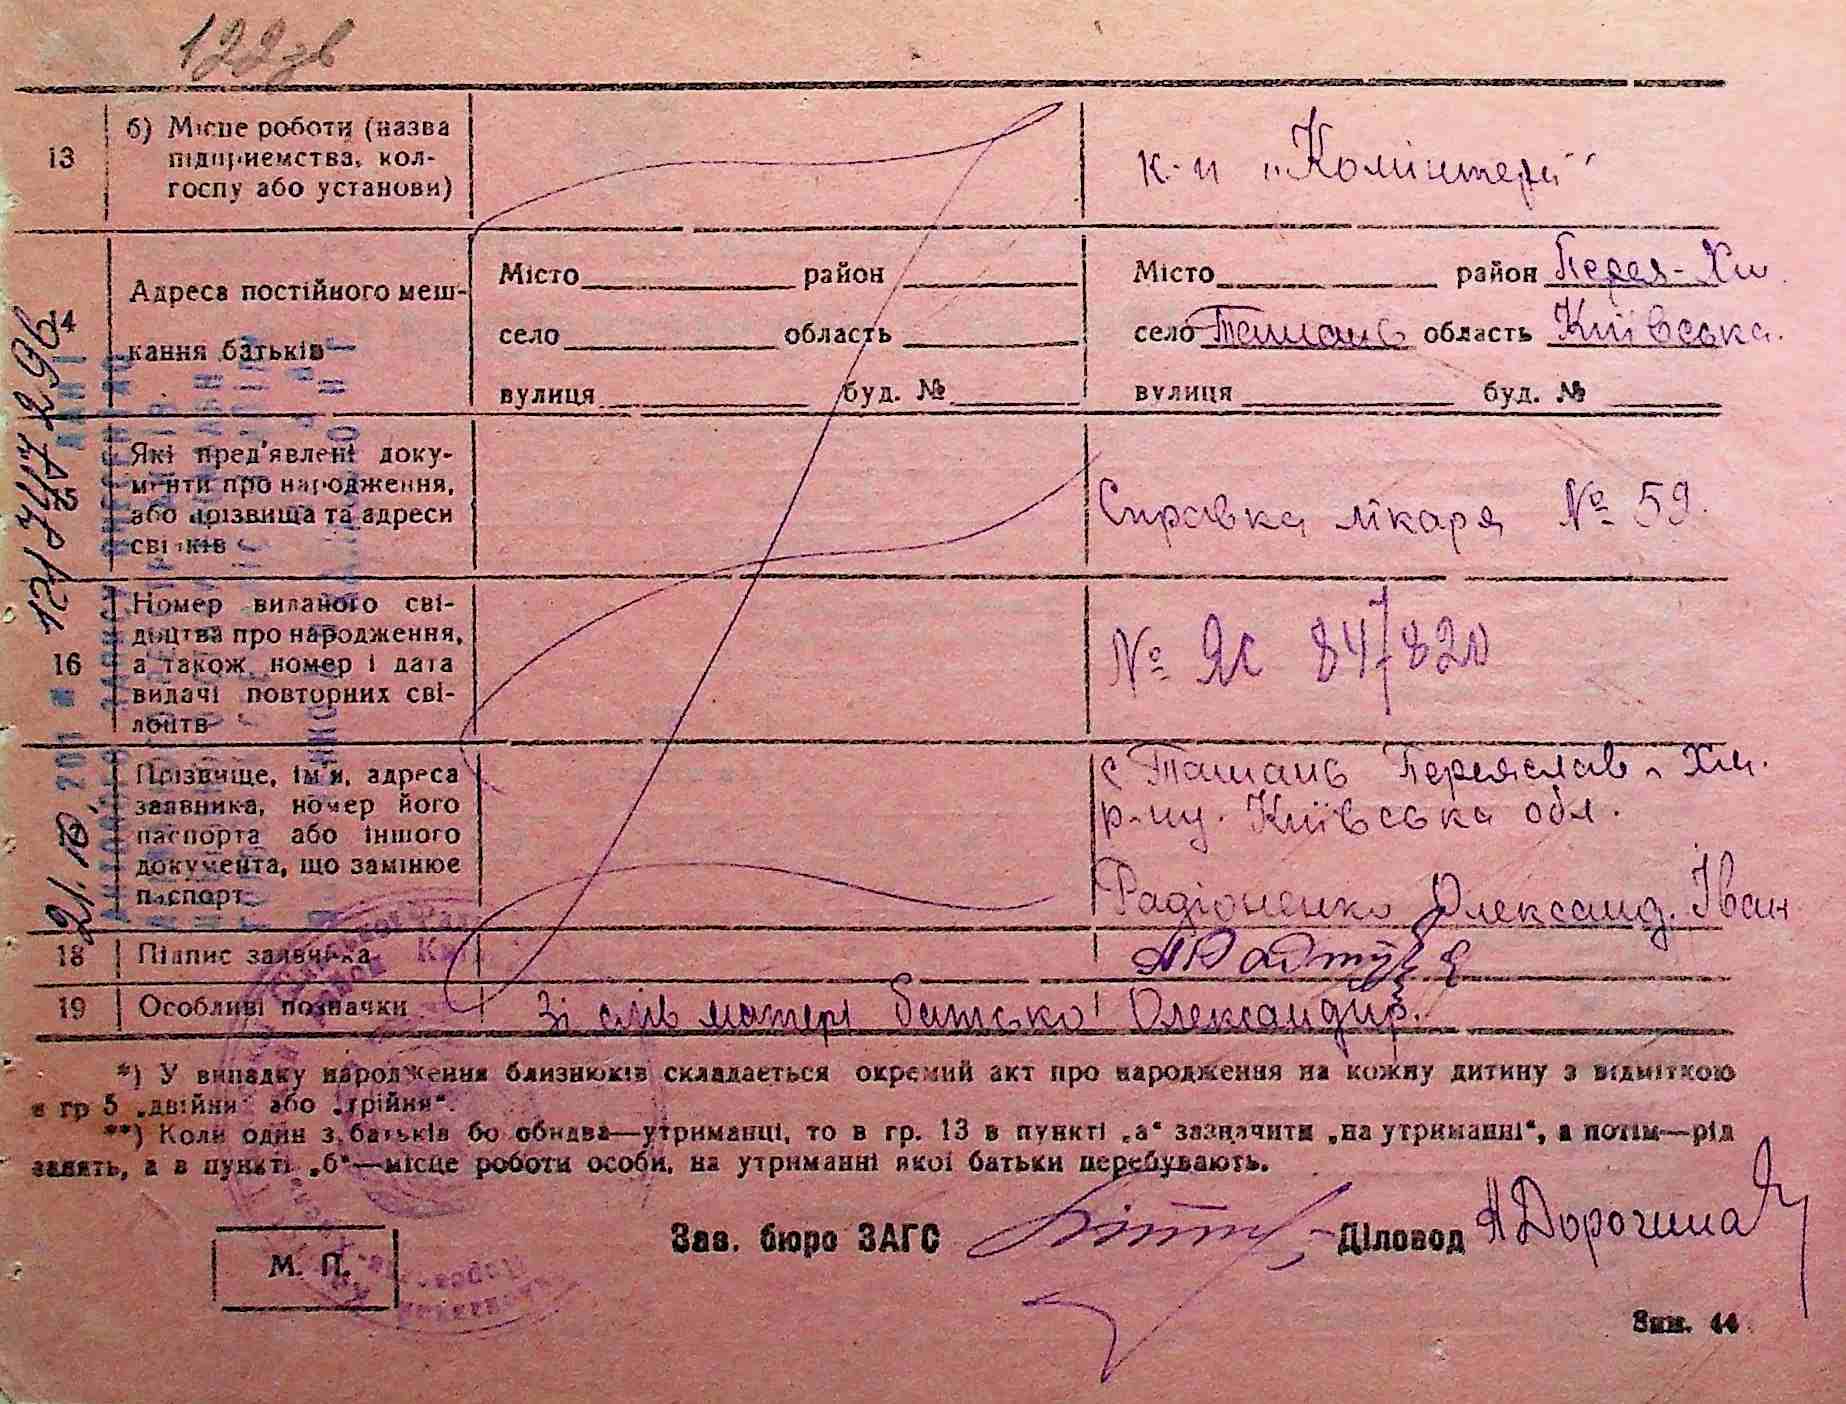 122зв
13 б) Місце роботи (назва
підприємства, кол-
госпу або установи)
к-п „Комінтерн"
14 Адреса постійного меш-
кання батьків
Місто район
село область
вулиця буд. №
Місто район Перея-Хм.
село Ташань область Київська.
вулиця буд. №
15 Які пред'явлені доку-
менти про народження,
або прізвища та адреси
свідків
Справка лікаря № 59.
16 Номер виданого сві-
доцтва про народження,
а також номер і дата
видачі повторних сві-
доцтв
№ ЯС 847820
Прізвище, ім'я, адреса
заявника, номер його
паспорта або іншого
документа, що замінює
паспорт
с Ташань Переяслав-Хм.
р-ну. Київська обл.
Радіоненко Олександ. Іван
18 Підпис заявника
19 Особливі позначки Зі слів матері батько Олександр.
*) У випадку народження близнюків складається окремий акт про народження на кожну дитину з відміткою
в гр 5 „двійни" або „трійня".
**) Коли один з батьків бо обидва—утриманці, то в гр. 13 в пункті „а" зазначити „на утриманні", а потім—рід
занять, а в пункті „б"—місце роботи особи, на утриманні якої батьки перебувають.
М. П.
Зав. бюро ЗАГС
Діловод
Зам. 44
21.10.